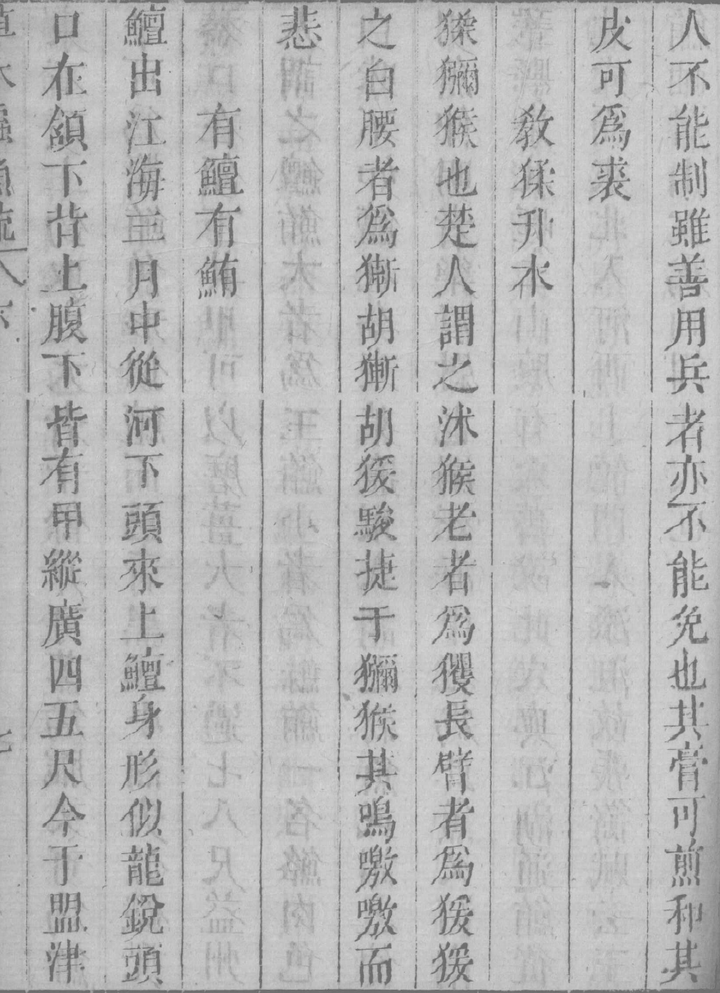 人不能制雖善用兵者亦不能免也其膏可煎和其
皮可爲裘
敎猱升木
猱獼猴也楚人謂之沐猴老者爲玃長臂者爲猨猨
之白腰者爲獑胡獑胡猨駿捷于獼猴其鳴噭噭而
悲
有鱣有鮪
鱣出江海三月中從河下頭來上鱣身形似龍銳頭
口在頷下背上腹下皆有甲縱廣四五尺今于盟津